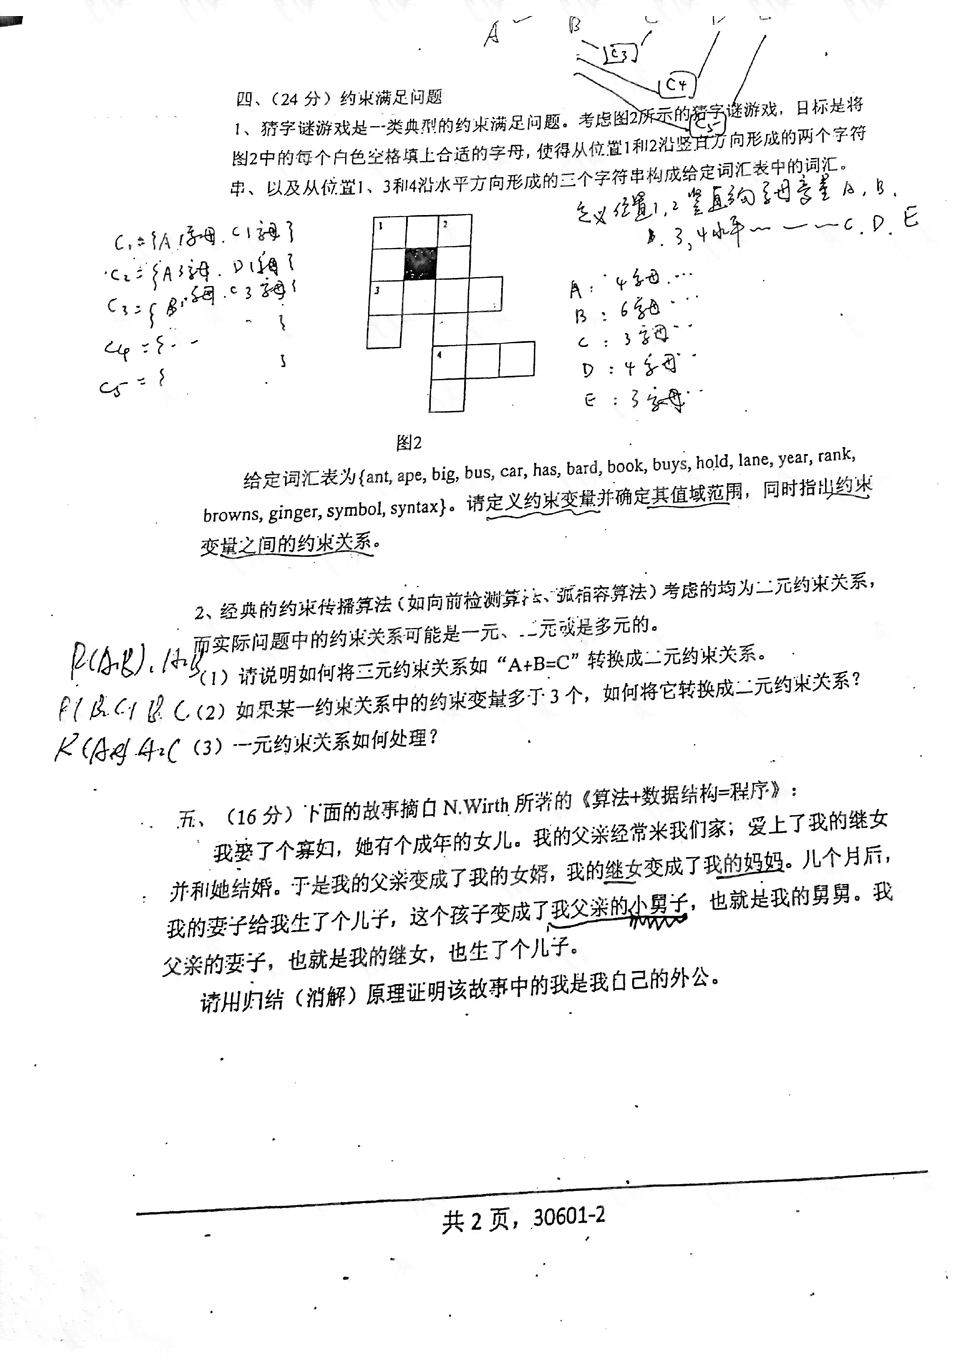 A B C D E
C3
C4
C5
四、（24 分）约束满足问题
1、猜字谜游戏是一类典型的约束满足问题。考虑图2所示的猜字谜游戏，目标是将
图2中的每个白色空格填上合适的字母，使得从位置1和2沿竖直方向形成的两个字符
串、以及从位置1、3和4沿水平方向形成的三个字符串构成给定词汇表中的词汇。
定义位置1,2竖直的字母变量A,B.
1.3,4水平 C.D.E
C1={A1字母.C1字母}
C2={A3字母.D1字母}
C3={B1字母.C3字母}
C4={
}
C5={
}
1 2
3
4
A：4字母...
B：6字母...
C：3字母...
D：4字母...
E：3字母...
图2
给定词汇表为{ant, ape, big, bus, car, has, bard, book, buys, hold, lane, year, rank,
browns, ginger, symbol, syntax}。请定义约束变量并确定其值域范围，同时指出约束
变量之间的约束关系。
2、经典的约束传播算法（如向前检测算法、弧相容算法）考虑的均为二元约束关系，
而实际问题中的约束关系可能是一元、二元或是多元的。
（1）请说明如何将三元约束关系如“A+B=C”转换成二元约束关系。
（2）如果某一约束关系中的约束变量多于 3 个，如何将它转换成二元约束关系？
（3）一元约束关系如何处理？
五、（16 分）下面的故事摘自 N.Wirth 所著的《算法+数据结构=程序》：
我娶了个寡妇，她有个成年的女儿。我的父亲经常来我们家；爱上了我的继女
并和她结婚。于是我的父亲变成了我的女婿，我的继女变成了我的妈妈。几个月后，
我的妻子给我生了个儿子，这个孩子变成了我父亲的小舅子，也就是我的舅舅。我
父亲的妻子，也就是我的继女，也生了个儿子。
请用归结（消解）原理证明该故事中的我是我自己的外公。
共 2 页，30601-2